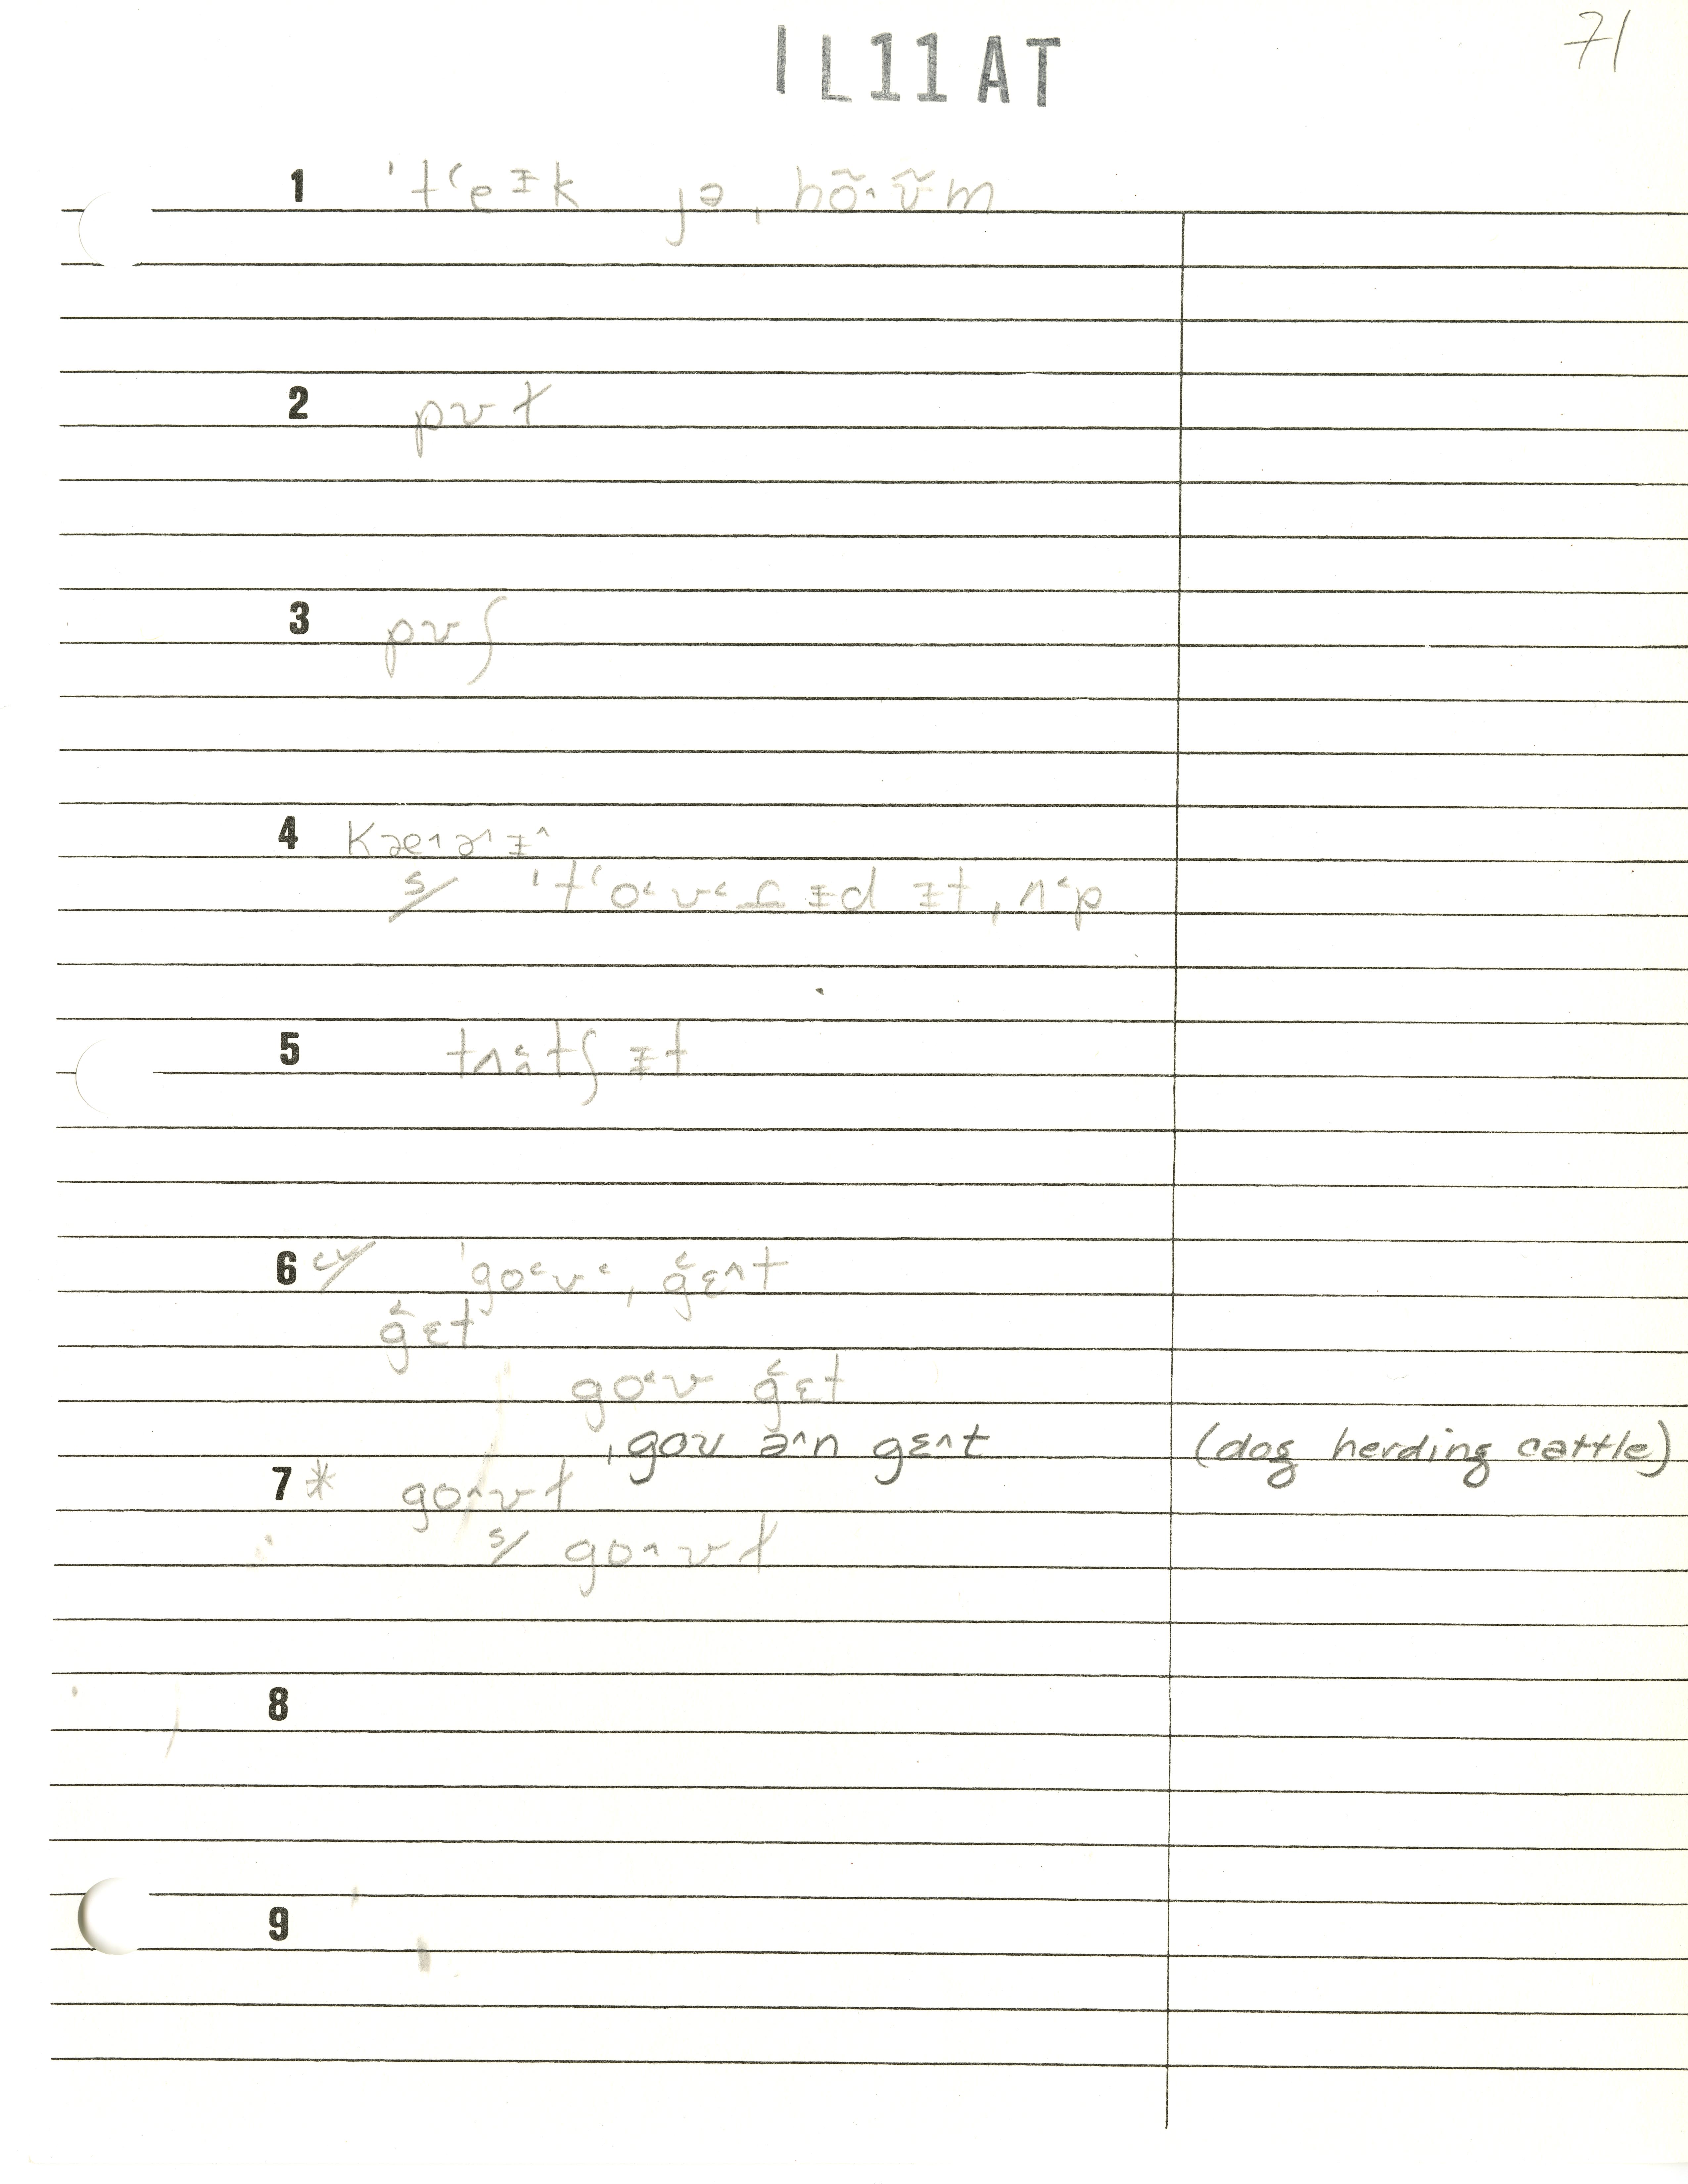 71
1L11AT
1 ˈtʻeɪk jə ˌhõ˄ʊ̃m
2 pʊt
3 pʊʃ
4 kæ˄ɚ˄ɪ˄
s/ ˈtʻo˂ʊ˂ɾɪd ɪt ˌʌ˂p
5 tʌ˂tʃ ɪt
6 cv/ ˈgo˂ʊ˂ ˌg̑ɛ˄t
g̑ɛt
go˂ʊ g̑ɛt
ˌgoʊ ə˄n gɛ˄t (dog herding cattle)
7 * go˄ʊt
s/ go˄ʊt
8
9